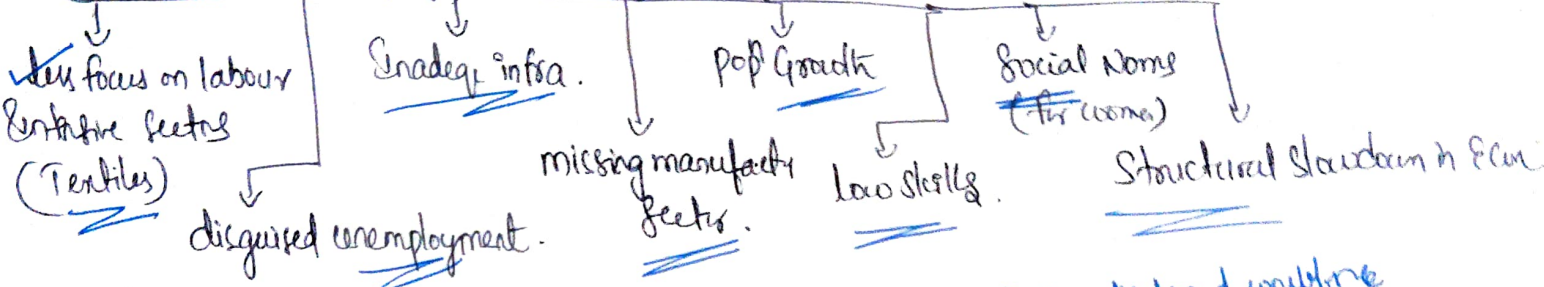 less focus on labour
intensive sectors
(Textiles)
disguised unemployment.
Inadeq. infra.
missing manufactg
sector.
Pop Growth
low skills.
Social Norms
(for women)
Structural Slowdown in Econ